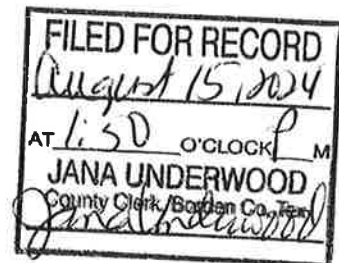 FILED FOR RECORD
August 15, 2024
AT 1:50 O'CLOCK P M
JANA UNDERWOOD
County Clerk, Borden Co., Tex
Jana Underwood